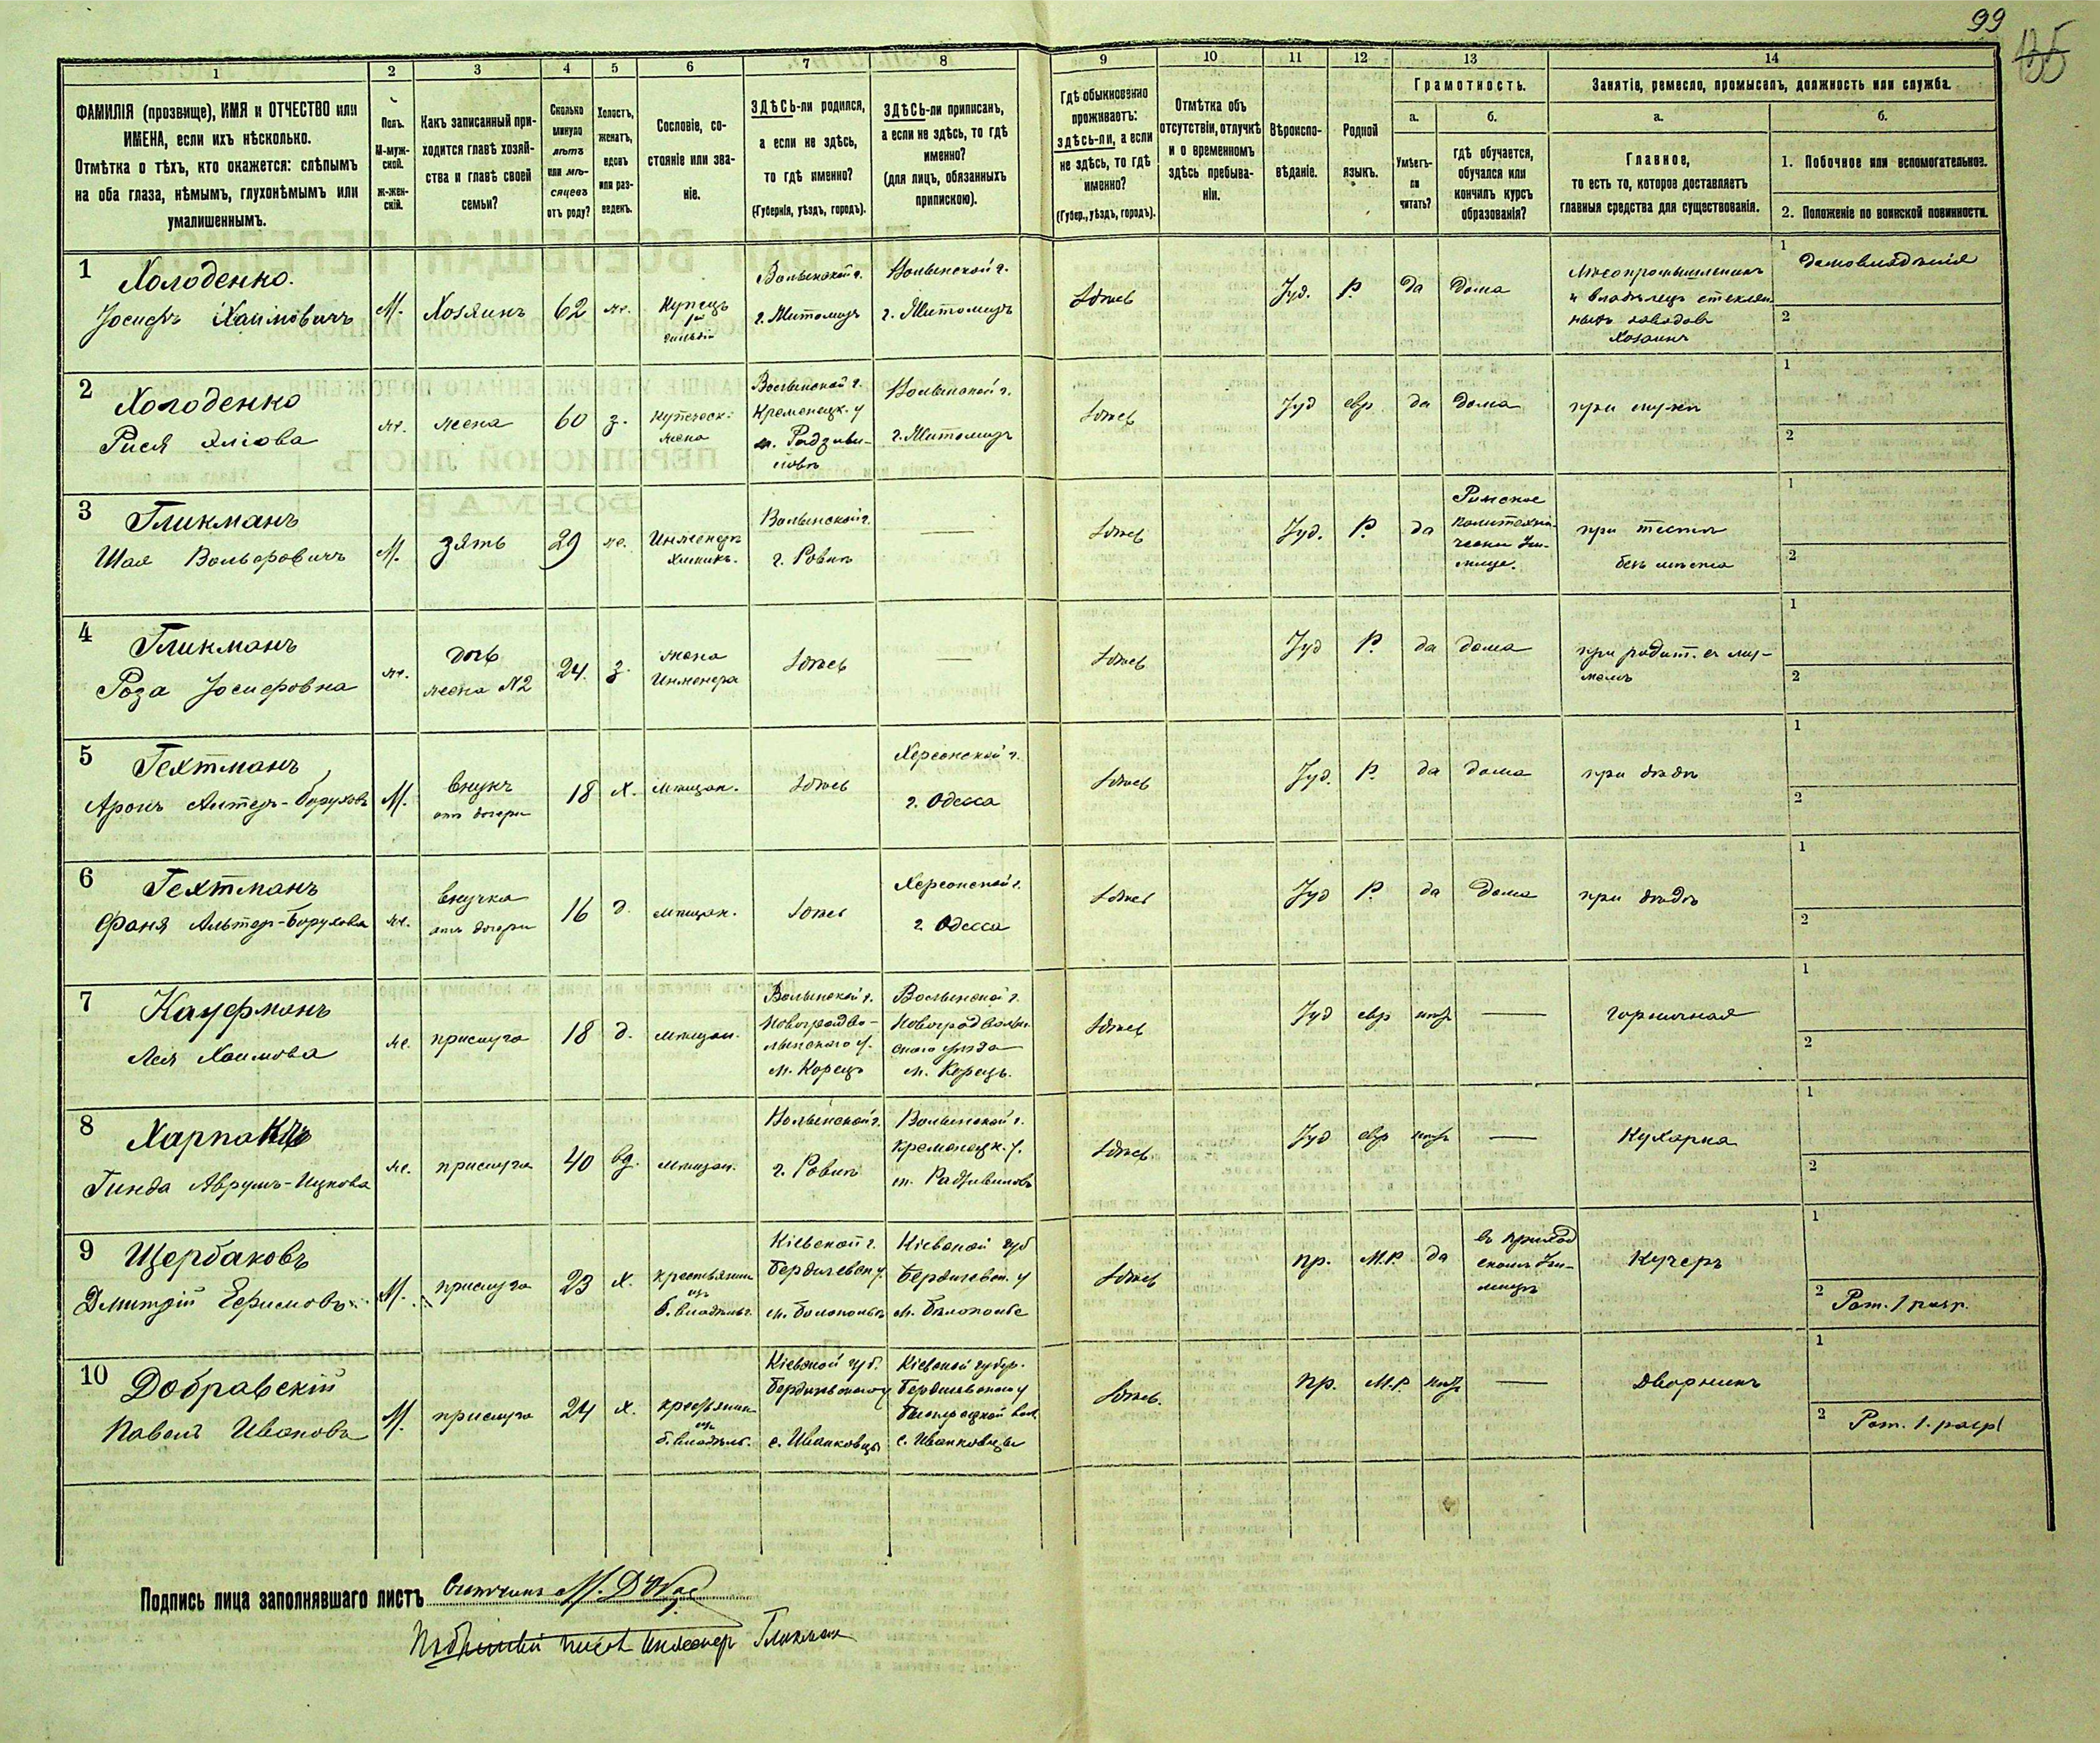 99
155
1
2
3
4
5
6
7
8
9
10
11
12
13
14
ФАМИЛІЯ (прозвище), ИМЯ и ОТЧЕСТВО или
ИМЕНА, если ихъ нѣсколько.
Отмѣтка о тѣхъ, кто окажется: слѣпымъ
на оба глаза, нѣмымъ, глухонѣмымъ или
умалишеннымъ.
Полъ.
М-муж-
ской.
Ж-жен-
скій.
Какъ записанный при-
ходится главѣ хозяй-
ства и главѣ своей
семьи?
Сколько
минуло
лѣтъ
или мѣ-
сяцевъ
отъ роду?
Холостъ,
женатъ,
вдовъ
или раз-
веденъ.
Сословіе, со-
стояніе или зва-
ніе.
ЗДѢСЬ-ли родился,
а если не здѣсь,
то гдѣ именно?
(Губернія, уѣздъ, городъ).
ЗДѢСЬ-ли приписанъ,
а если не здѣсь, то гдѣ
именно?
(для лицъ, обязанныхъ
припискою).
Гдѣ обыкновенно
проживаетъ:
здѣсь-ли, а если
не здѣсь, то гдѣ
именно?
(Губер., уѣздъ, городъ).
Отмѣтка объ
отсутствіи, отлучкѣ
и о временномъ
здѣсь пребыва-
ніи.
Вѣроиспо-
вѣданіе.
Родной
языкъ.
Грамотность.
а.
Умѣетъ-
ли
читать?
б.
гдѣ обучается,
обучался или
кончилъ курсъ
образованія?
Занятіе, ремесло, промыселъ, должность или служба.
а.
Главное,
то есть то, которое доставляетъ
главныя средства для существованія.
б.
1. Побочное или вспомогательное.
2. Положеніе по воинской повинности.
1
Холоденко.
Іосифъ Хаимовичъ
М.
Хозяинъ
62
ж.
Купецъ
гильдіи
Волынской г.
г. Житомиръ
Волынской г.
г. Житомиръ
Здѣсь
Іуд.
Р.
да
дома
и владѣлецъ стеклян
ныхъ заводовъ
Хозяинъ
1
домовладѣнія
2
2
Холоденко
Рися Эліова
ж.
жена
60
з.
Купеческ.
жена
Волынской г.
Кременецк. у
м. Радзиви-
ловъ
Волынской г.
г. Житомиръ
Здѣсь
Іуд
евр.
да
дома
при мужѣ
1
2
3
Гликманъ
Шая Вольфовичъ
М.
зять
29
ж.
Инженеръ
Химикъ.
Волынской г.
г. Ровно
—
Здѣсь
Іуд.
Р.
да
Рижское
политехни-
ческое Учи-
лище.
при тестѣ
безъ мѣста
1
2
4
Гликманъ
Роза Іосифовна
ж.
дочь
жена №2
24.
з.
жена
Инженера
Здѣсь
—
Здѣсь
Іуд
Р
да
дома
при родит. съ му-
жемъ
1
2
5
Гехтманъ
Аронъ Алтеръ-Боруховъ
М.
внукъ
отъ дочери
18
х.
мѣщан.
Здѣсь
Херсонской г.
г. Одесса
Здѣсь
Іуд.
Р.
да
дома
при дѣдѣ
1
2
6
Гехтманъ
Фаня Альтер-Борухова
ж.
внучка
отъ дочери
16
д.
мѣщан.
Здѣсь
Херсонской г.
г. Одесса
Здѣсь
Іуд
Р.
да
дома
при дѣдѣ
1
2
7
Кауфманъ
Лея Хаимова
ж.
прислуга
18
д.
мѣщан.
Волынской г.
Новоградво-
лынского у.
м. Корецъ
Волынской г.
Новоград Волын-
скаго уѣзда
м. Корецъ.
Здѣсь
Іуд
евр
нѣтъ
—
горничная
1
2
8
Гинда Аврумъ-Ицкова
ж.
прислуга
40
вд.
мѣщан.
Волынской г.
г. Ровно
Волынской г.
Кременецк. у.
м. Радзивиловъ
Здѣсь
Іуд
евр
нѣтъ
—
Кухарка
1
2
9
Щербаковъ
Дмитрій Ефимовъ
М.
прислуга
23
х.
крестьянин
изъ
б. владѣльч.
Кіевской г.
Бердичевск у.
м. Бѣлополье
Кіевской губ
Бердичевск. у
м. Бѣлополье
Здѣсь
пр.
М.Р.
да
въ приход
скомъ Учи-
лищѣ
Кучеръ
1
2
Рат. 1 разр.
10
Добравскій
Павелъ Ивановъ
М.
прислуга
24
х.
крестьянин
изъ
б. владѣльч.
Кіевской губ.
Бердичевского у
с. Иванковцы
Кіевской губер.
Бердичевского у
с. Иванковцы
Здѣсь.
пр.
М.Р.
нѣтъ
—
дворникъ
1
2
Рат. 1. разр
Подпись лица заполнявшаго листъ
Счетчикъ М.
Инженер Гликман